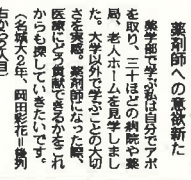 薬剤師への意欲新た
薬学部で学ぶ私は自分でアポ
を取り、三十ほどの病院や薬
局、老人ホームを見学しまし
た。大学以外で学ぶことの大切
さを実感。薬剤師になった際、
医療にどう貢献できるかをこれ
からも探していきたいです。
（名城大2年、岡田彩花＝後列
左から5人目）